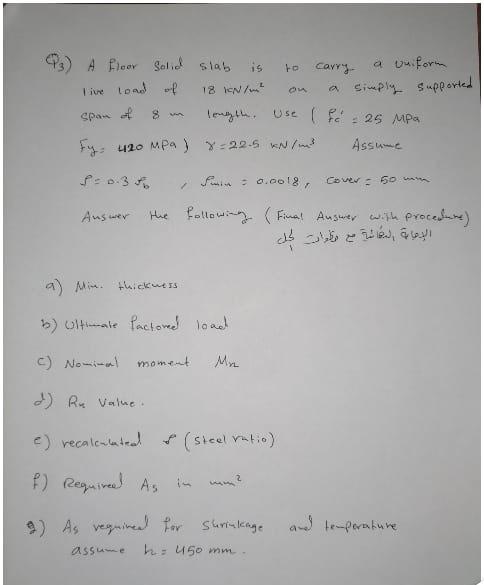 Q3) A floor solid slab is to carry a uniform
live load of 18 kN/m² on a simply supported
span of 8 m length. Use ( fc' = 25 MPa
Fy = 420 MPa ) γ = 22.5 kN/m³ Assume
ρ = 0.3 ρb , ρmin = 0.0018, cover = 50 mm
Answer the following (Final Answer with procedure)
الإجابة النهائية مع خطوات الحل
a) Min. thickness
b) Ultimate factored load
c) Nominal moment Mn
d) Rn Value.
e) recalculated ρ (steel ratio)
f) Required As in mm²
g) As required for shrinkage and temperature
assume h = 450 mm.